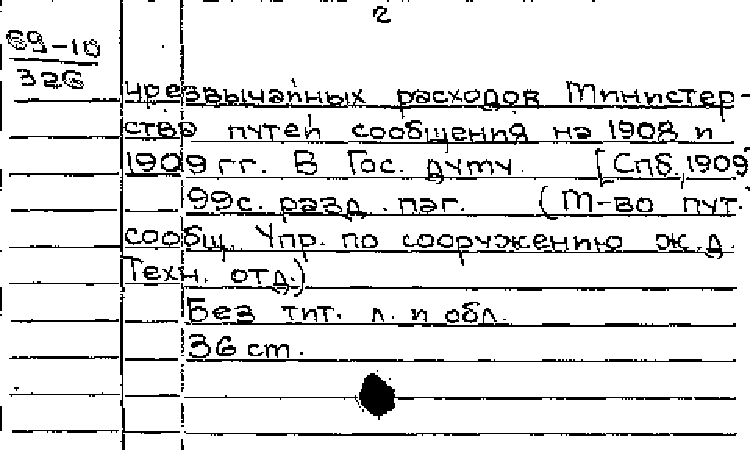 2
69-10
326
чрезвычайных расходов Министер-
ства путей сообщения на 1908 и
1909 гг. В Гос. думу. [Спб, 1909]
99 с. разд. паг. (М-во пут.
сообщ. Упр. по сооружению ж.д.
Техн. отд.)
Без тит. л. и обл.
36 см.